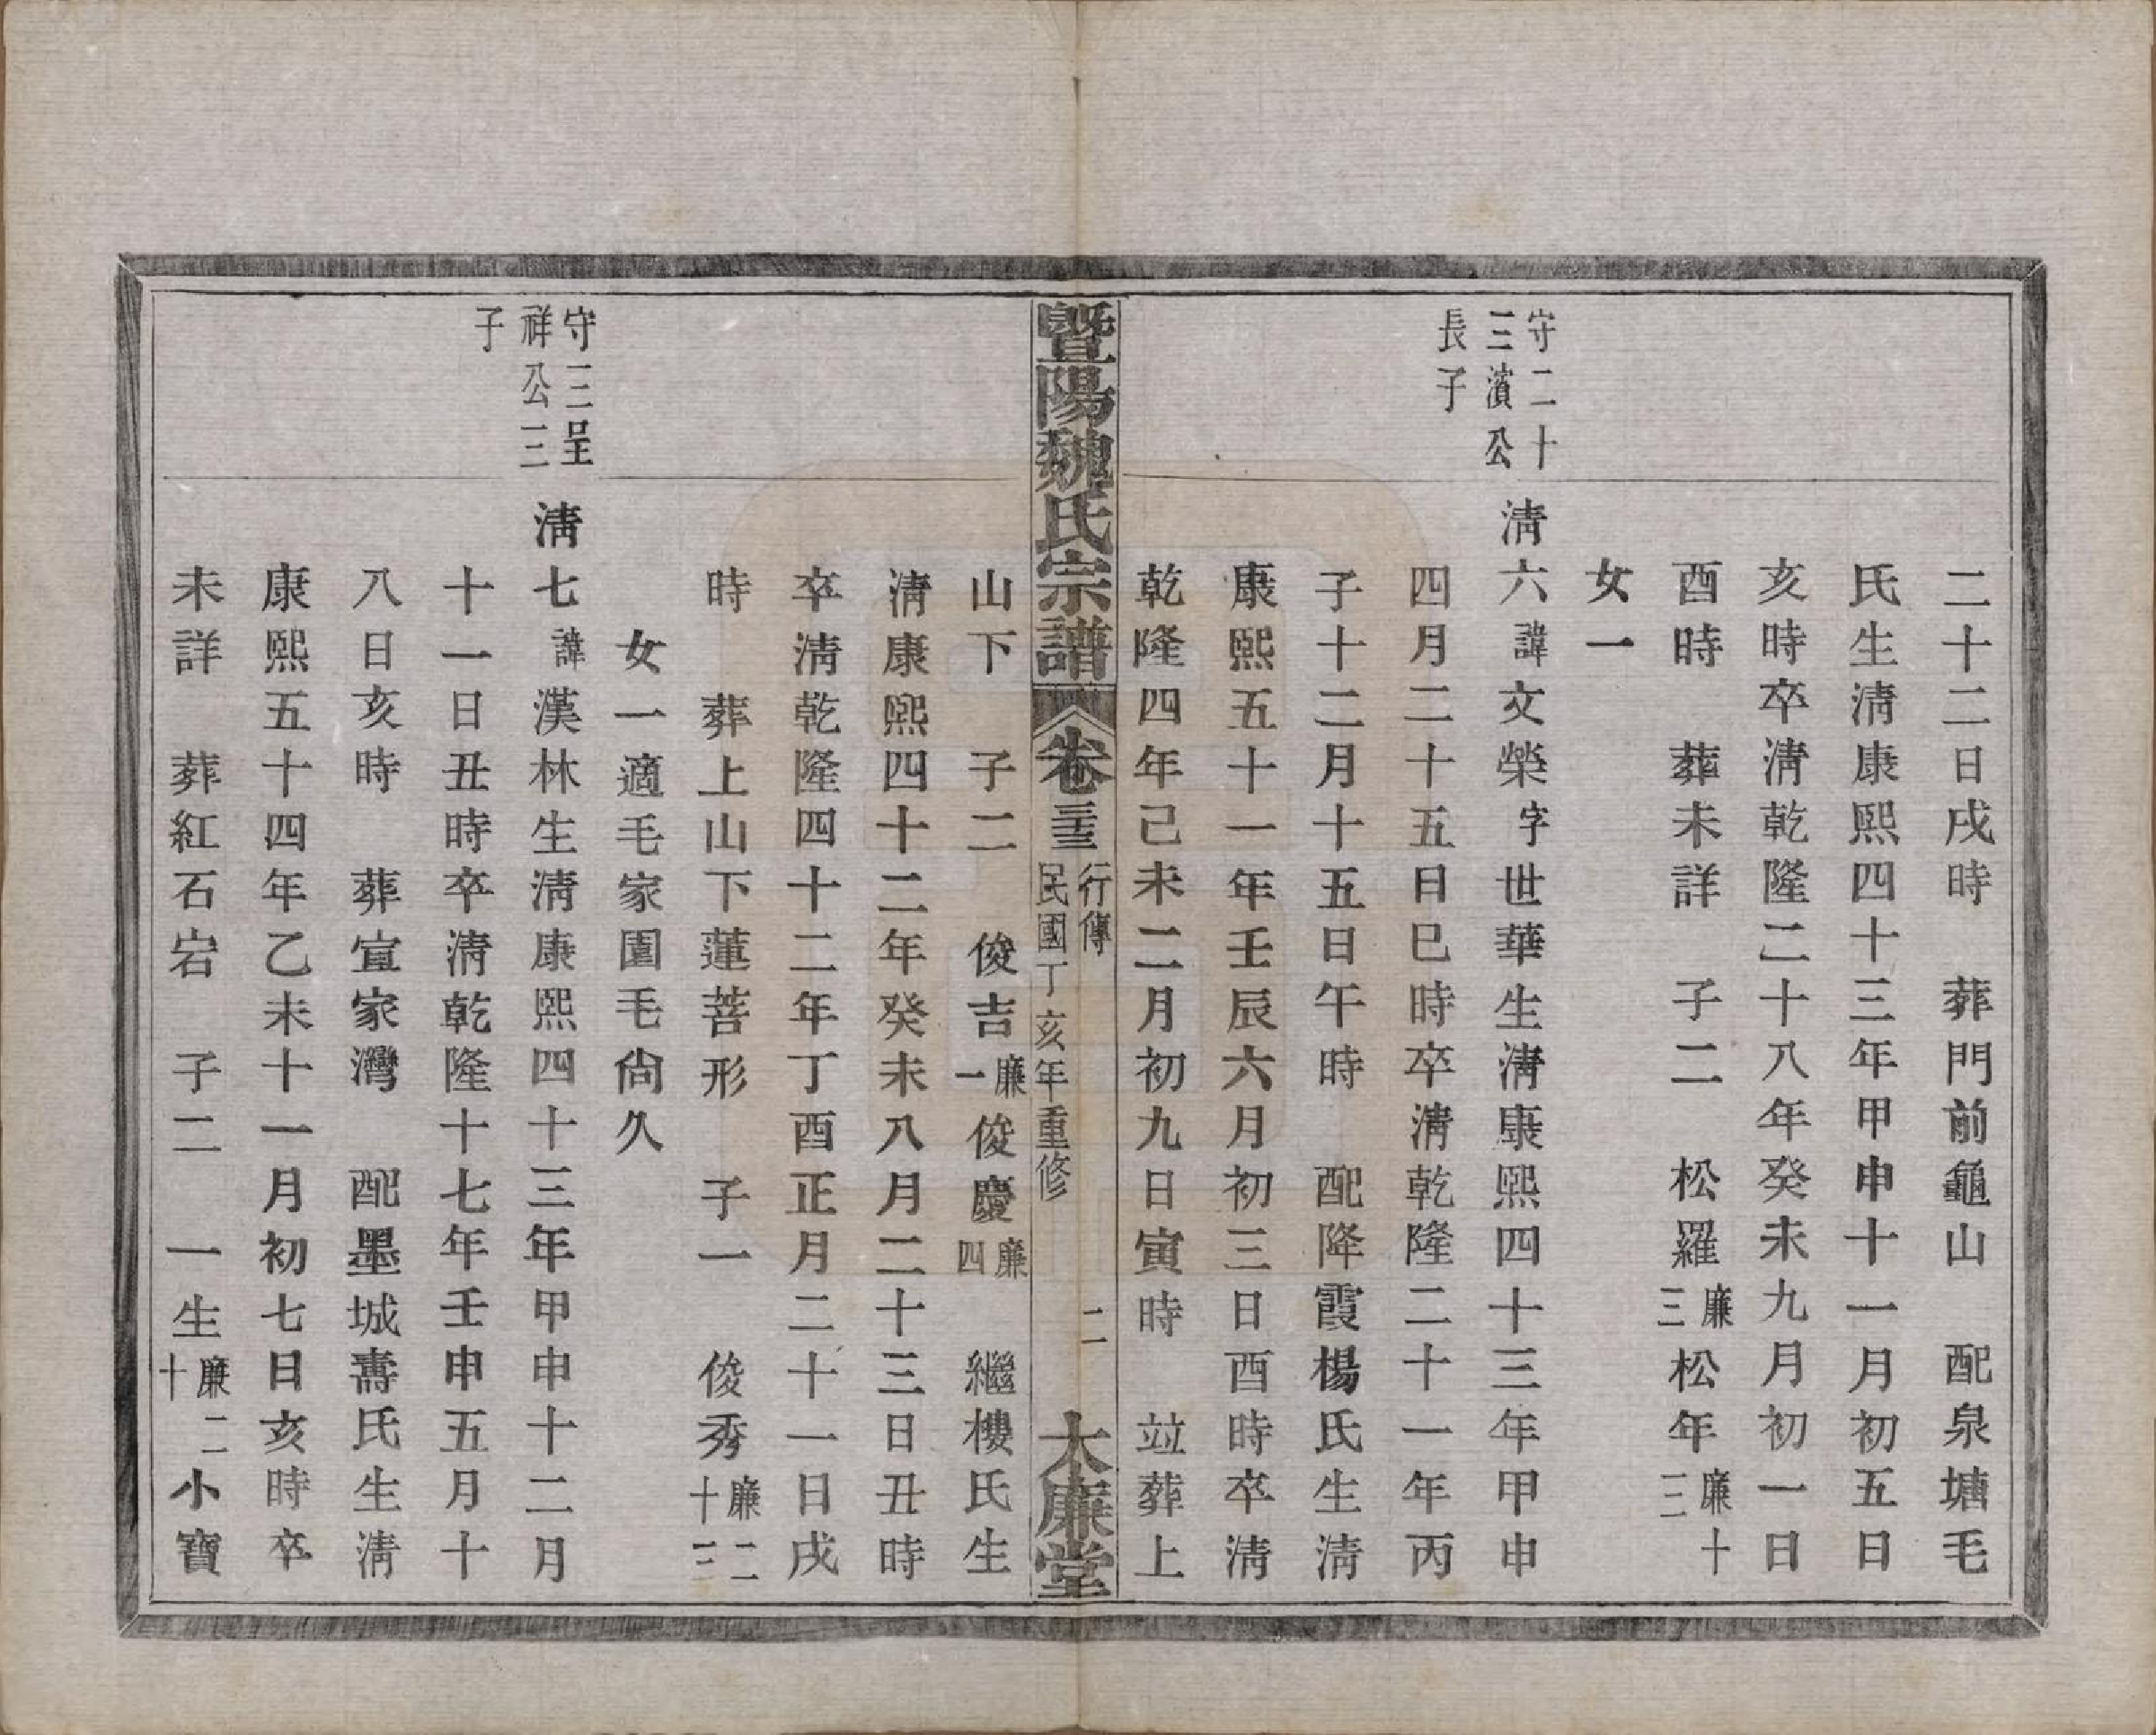 二十二日戌時　葬門前龜山　配泉塘毛
氏生淸康熙四十三年甲申十一月初五日
亥時卒淸乾隆二十八年癸未九月初一日
酉時　葬未詳　子二　松羅廉三松年廉十三
女一
守二十三濱公長子
淸六諱文榮字世華生淸康熙四十三年甲申
四月二十五日巳時卒淸乾隆二十一年丙
子十二月十五日午時　配降霞楊氏生淸
康熙五十一年壬辰六月初三日酉時卒淸
乾隆四年己未二月初九日寅時　竝葬上
暨陽魏氏宗譜　卷三十三　行傳　民國丁亥年重修　二　大廉堂
山下　子二　俊吉廉一俊慶廉四　繼樓氏生
淸康熙四十二年癸未八月二十三日丑時
卒淸乾隆四十二年丁酉正月二十一日戌
時　葬上山下蓮菩形　子一　俊秀廉二十三
女一適毛家園毛尙久
守三呈祥公三子
淸七諱漢林生淸康熙四十三年甲申十二月
十一日丑時卒淸乾隆十七年壬申五月十
八日亥時　葬宣家灣　配墨城壽氏生淸
康熙五十四年乙未十一月初七日亥時卒
未詳　葬紅石岩　子二　一生廉十二小寶